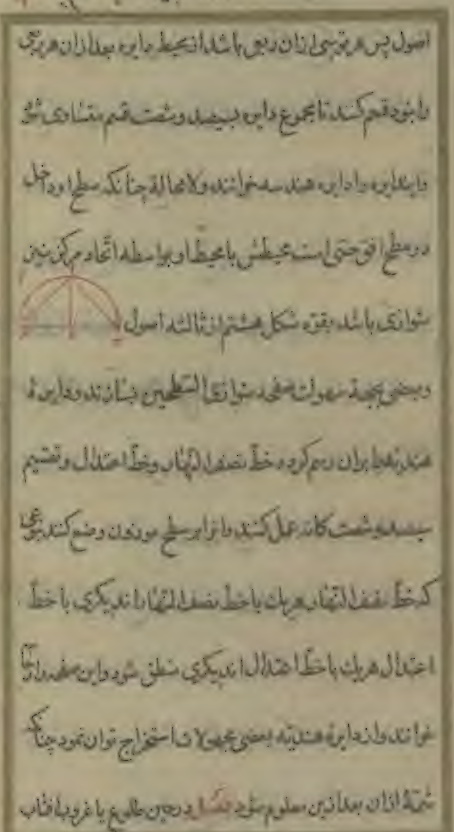 اصول پس هر قوسی ازان ربعی باشد از محیط دایره بعد ازان هر ربعی
را بنود قسم کنند تا مجموع دایره بسیصد و شصت قسم متساوی شود
و این دایره را دایره هندسه خوانند ولا محالة چنانکه سطح او داخل
در سطح افق حسی است محیطش با محیط او بواسطه اتحاد مرکز نیز
متوازی باشد بقوه شکل هشتم از ثالثه اصول
و بعضی بجهة سهولت صفحه متوازی السطحین بسازند و دایرهٔ
هندیه را بران رسم کرده خط نصف النهار و خط اعتدال و تقسیم
سیصد و شصت کانه عمل کنند و انرا بر سطح موزون وضع کنند بنوعی
که خط نصف النهار هریك با خط نصف النهار اندیکری با خط
اعتدال هریك با خط اعتدال اندیکری منطبق شود و این صفحه را
خوانند و از دایرهٔ هندیه بعضی مجهولات استخراج توان نمود چنانکه
شمهٔ ازان بعد ازین معلوم شود فصل در حین طلوع یا غروب افتاب